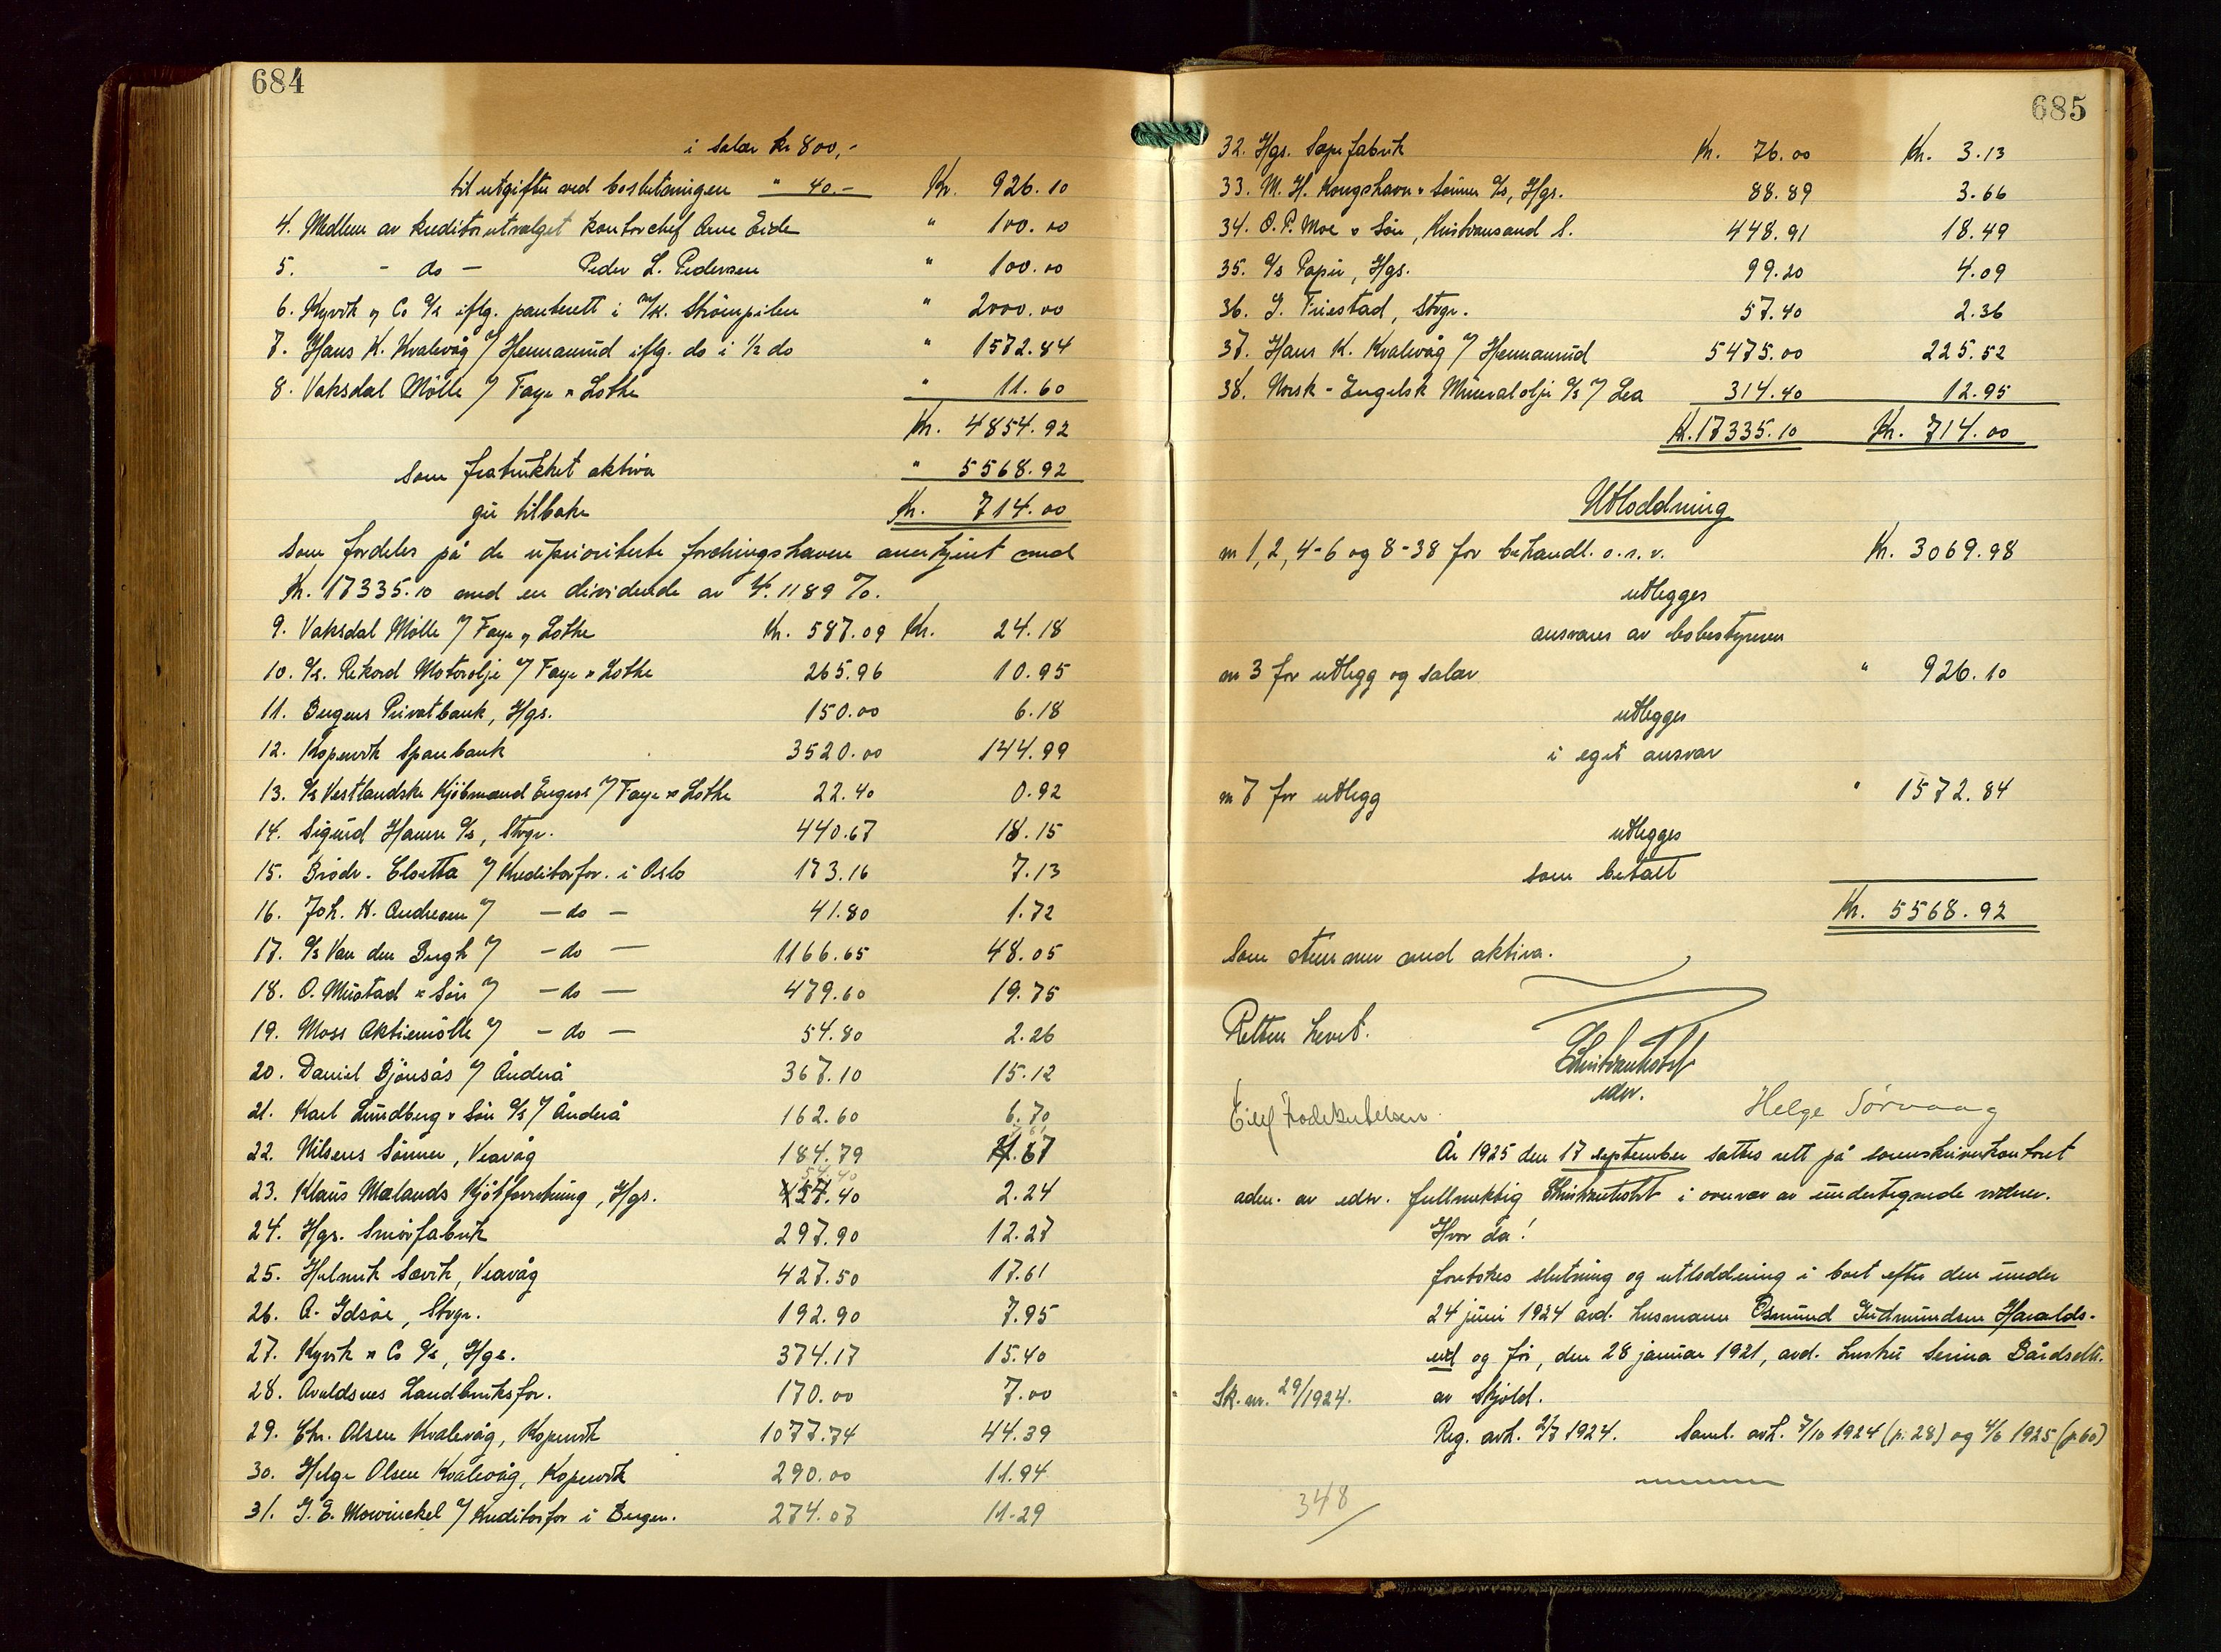 684
i salær kr 800,-
til utgifter ved beslutningen " 40.- Kr. 926.10
4. Medlem av kreditorutvalget kontorchef Arne Eide " 100.00
5. - do - Peder L. Pedersen " 100.00
6. Kyvik & Co A/s iflg. panterett i M/K. Strömpilen " 2000.00
7. Hans K. Kvalevåg v/ Hermanrud iflg. do i 1/2 do " 1572.84
8. Vaksdal Mölle v/ Faye & Lothe " 11.60
Kr. 4854.92
som fratrukket aktiva " 5568.92
gir tilbake Kr. 714.00
Som fordeles på de uprioriterte fordringshavere anerkjent med
Kr. 17335.10 med en dividende av 4.1189 %.
9. Vaksdal Mölle v/ Faye & Lothe Kr. 587.09 Kr. 24.18
10. A/s. Rekord Motorolje v/ Faye & Lothe 265.96 10.95
11. Bergens Privatbank, Hgs. 150.00 6.18
12. Kopervik Sparebank 3520.00 144.99
13. A/s Vestlandske Kjöbmænd Engros v/ Faye & Lothe 22.40 0.92
14. Sigurd Hamre A/s, Stvgr. 440.67 18.15
15. Brödr. Cloetta v/ Kreditorfor. i Oslo 173.16 7.13
16. Joh. H. Andresen v/ - do - 41.80 1.72
17. A/s Van den Bergh v/ - do - 1166.65 48.05
18. O. Mustad & Sön v/ - do - 479.60 19.75
19. Moss Aktiemölle v/ - do - 54.80 2.26
20. Daniel Bjönsås v/ Anderå 367.10 15.12
21. Karl Lundberg & Sön A/s v/ Anderå 162.60 6.70
22. Nilsens Sönner, Veavåg 184.79 7.67
23. Klaus Mælands Kjötforretning, Hgs. 57.40 54.40 2.24
24. Hgs. Smörfabrik 297.90 12.27
25. Helmik Sævik, Veavåg 427.50 17.61
26. A. Idsöe, Stvgr. 192.90 7.95
27. Kyvik & Co A/s, Hgs. 374.17 15.40
28. Avaldsnes Landbruksfor. 170.00 7.00
29. Chr. Olsen Kvalevåg, Kopervik 1077.74 44.39
30. Helge Olsen Kvalevåg, Kopervik 290.00 11.94
31. J. E. Mowinckel v/ Kreditorfor i Bergen. 274.07 11.29
685
32. Hgs. Såpefabrik Kr. 76.00 Kr. 3.13
33. M. H. Kongshavn & Sönner A/s, Hgs. 88.89 3.66
34. O. P. Moe & Sön, Kristiansand S. 448.91 18.49
35. A/s Papir, Hgs. 99.20 4.09
36. J. Triestad, Stvgr. 57.40 2.36
37. Hans K. Kvalevåg v/ Hermanrud 5475.00 225.52
38. Norsk-Engelsk Mineralolje A/s v/ Lea 314.40 12.95
K. 17335.10 Kr. 714.00
Utloddning
nr 1, 2, 4-6 og 8-38 for behandl. o.s.v. Kr. 3069.98
utlegges
ansvares av bobestyreren
nr 3 for utlegg og salær " 926.10
utlegges
i eget ansvar
nr 7 for utlegg " 1572.84
utlegges
som betalt
Kr. 5568.92
Som stemmer med aktiva.
Retten hevet.
edsv.
Helge Sörvaag
År 1925 den 17 september sattes rett på sorenskriverkontoret
adm. av edsv. fullmektig i overvær av undertegnede vidner.
Hvor da!
foretokes slutning og utloddning i boet efter den under
24 juni 1924 avd. husmann Osmund Gudmundsen Haralds-
eid og för, den 28 januar 1921, avd. hustru Serina Bårdsdtr.
Sk. nr. 29/1924. av Skjold.
Reg. avh. 2/7 1924. Saml. avh. 7/10 1924 (p. 28) og 4/6 1925 (p. 60)
348